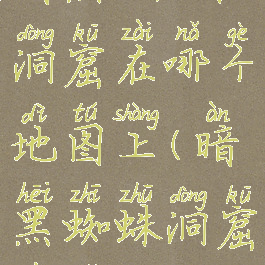 dòng kū zài nǎ gè
洞窟在哪个
dì tú shàng àn
地图上(暗
hēi zhī zhū dòng kū
黑蜘蛛洞窟